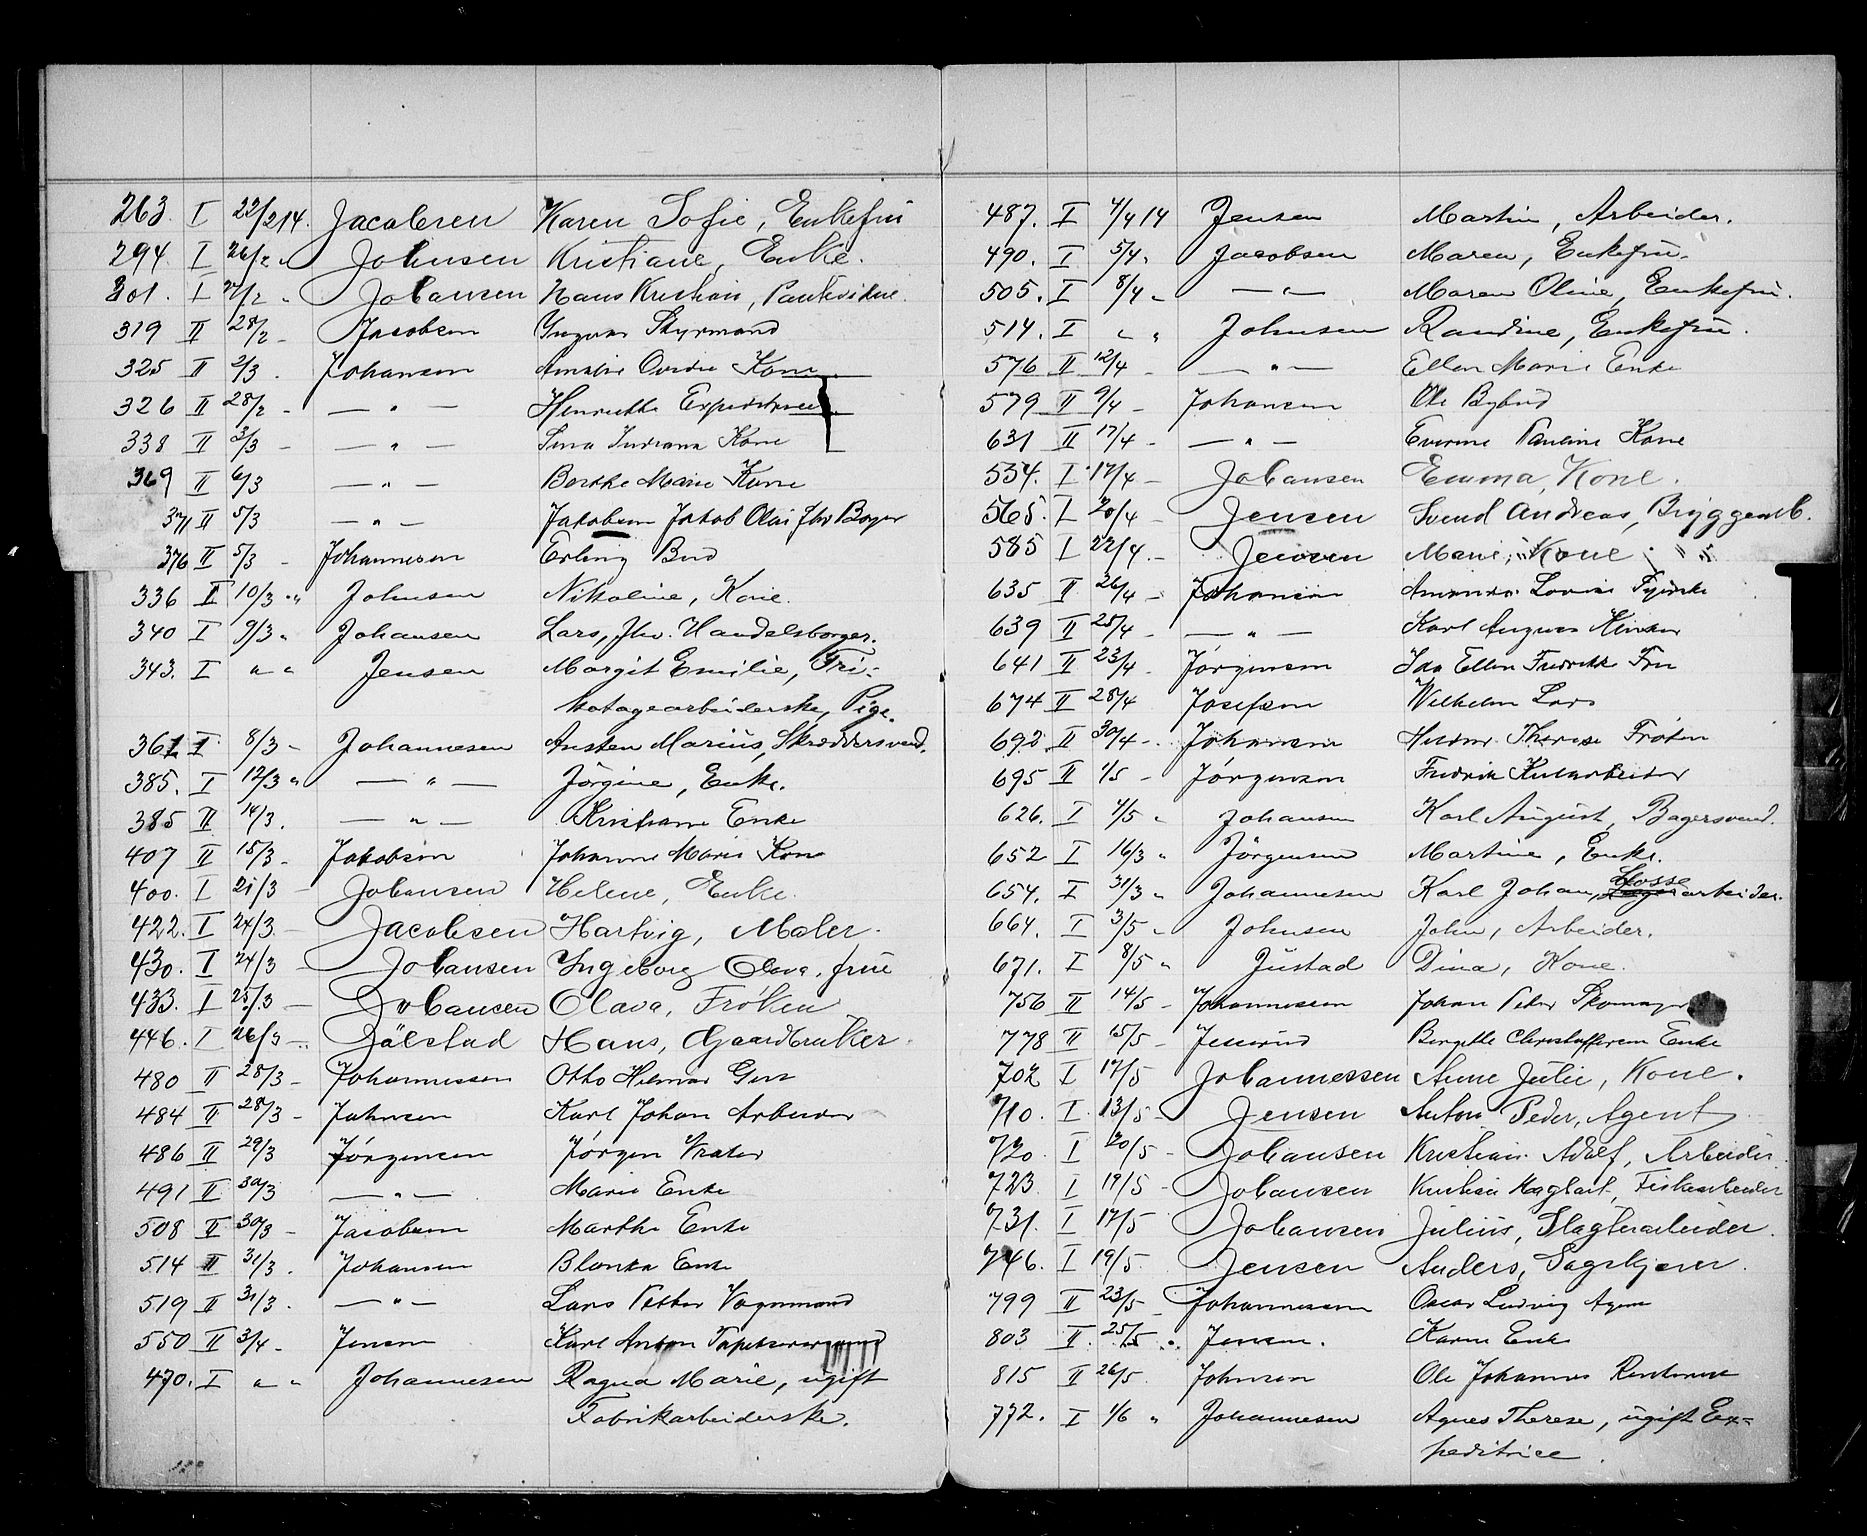 263. I 22/2 14. Jacobsen Karen Sofie, Enkefru
294. I 26/2 " Johnsen Kristiane, Enke.
301. I 27/2 " Johansen Hans Kristian,
319 II 28/2 - Jacobsen Ingvar Styrmand
325 II 2/3 . Johansen Amalie Kone
326 II 28/2 - — " — Henriette
338 II 3/3 - — " — Lina Kone
369 II 6/3 — " — Berthe Marie Kone
371 II 5/3 — " — Jakobsen Jakob Olai fhv Bager
376 II 5/3 - Johannesen Erling Bud
336 II 10/3 " Johnsen Nikoline, Kone.
340 I 9/3 " Johansen Lars, fhv. Handelsborger.
343. I " " Jensen Margit Emilie, Tri-
kotagearbeiderske, Pige.
361 I 8/3 - Johannesen Ansten Marius, Skræddersvend.
385. I 12/3 " — " — Jörgine, Enke.
385 II 14/3. — " — Kristiane Enke
407 II 15/3 - Jakobsen Johanne Marie Kone
400. I 21/3 - Johansen Helene, Enke.
422. I 24/3 - Jacobsen Hartvig, Maler.
430. I 24/3 - Johansen Ingeborg Olava, frue
433. I 25/3 - Johansen Olava, Frøken
446. I 26/3 - Jälstad Hans, Gaardbruker
480 II 28/3 - Johannessen Otto Hilmar Gut
484 II 28/3 - Johnsen Karl Johan Arbeider
486 II 29/3 Jörgensen Jørgen
491 II 30/3 — " — Marie Enke
508 II 30/3 - Jacobsen Marthe Enke
514 II 31/3 . Johansen Blanka Enke
519 II 31/3 . — " — Lars Petter Vognmand
550 II 3/4 - Jensen Karl Anton Tapetserersvend
470. I " " Johannesen Ragna Marie, ugift
Fabrikarbeiderske.
487. I 4/4 14 Jensen Martin, Arbeider.
490. I 5/4 " Jacobsen Maren, Enkefru.
505. I 8/4 - — " — Maren Oline, Enkefru.
514. I " " Johnsen Randine, Enkefru.
576 II 12/4 - — " — Ellen Marie Enke
579 II 9/4 - Johansen Ole Bybud
631 II 17/4 - — " — Pauline Kone
534. I 17/4 - Johansen Emma, Kone.
565. I 20/4 - Jensen Svend Andreas, Bryggearb.
585 I 22/4 - Jensen Marie, Kone
635 II 26/4 - Johansen Amanda Lovise
639 II 25/4 - — " — Karl
641 II 23/4 - Jörgensen Ida Ellen Fredrikke Fru
674 II 28/4 Josefsen Wilhelm
692 II 30/4 - Johansen Therese Frøken
695 II 1/5 - Jörgensen Fredrik Kularbeider
626. I 4/5 " Johansen Karl August, Bagersvend.
652 I 16/3 " Jörgensen Martine, Enke.
654. I 31/3 " Johannesen Karl Johan, Losse arbeider.
664. I 3/5 " Johnsen John, Arbeider.
671. I 8/5 " Justad Dina, Kone.
756 II 14/5 - Johannessen Johan Peter Skomager
778 II 15/5 - Birgitte Christoffersen Enke
702 I 17/5 Johannessen Anne Julie, Kone.
710. I 13/5 - Jensen Anton Peder, Agent
720. I 20/5 - Johansen Kristian Adolf, Arbeider.
723. I 19/5 - Johansen Kristian Fiskearbeider
731. I 17/5 Johansen Julius, Slagterarbeider.
746. I 19/5. Jensen Anders, Sagskjærer.
799 II 23/5 - Johannessen Oscar Ludvig Agent
803 II 25/5 Jensen. Karen Enke
815 II 26/5 Johnsen Ole Johannes Rentenist
772. I 1/6 " Johannesen Agnes Therese, ugift Ex-
peditrice.